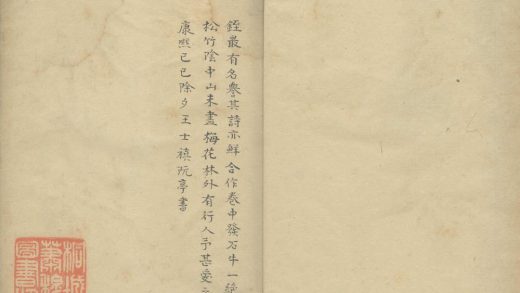 銍最有名譽其詩亦鮮合作卷中發石牛一絶
松竹陰中山未盡梅花林外有行人予甚愛之
康熙己巳除夕王士禛阮亭書
桐城蕭穆圖書